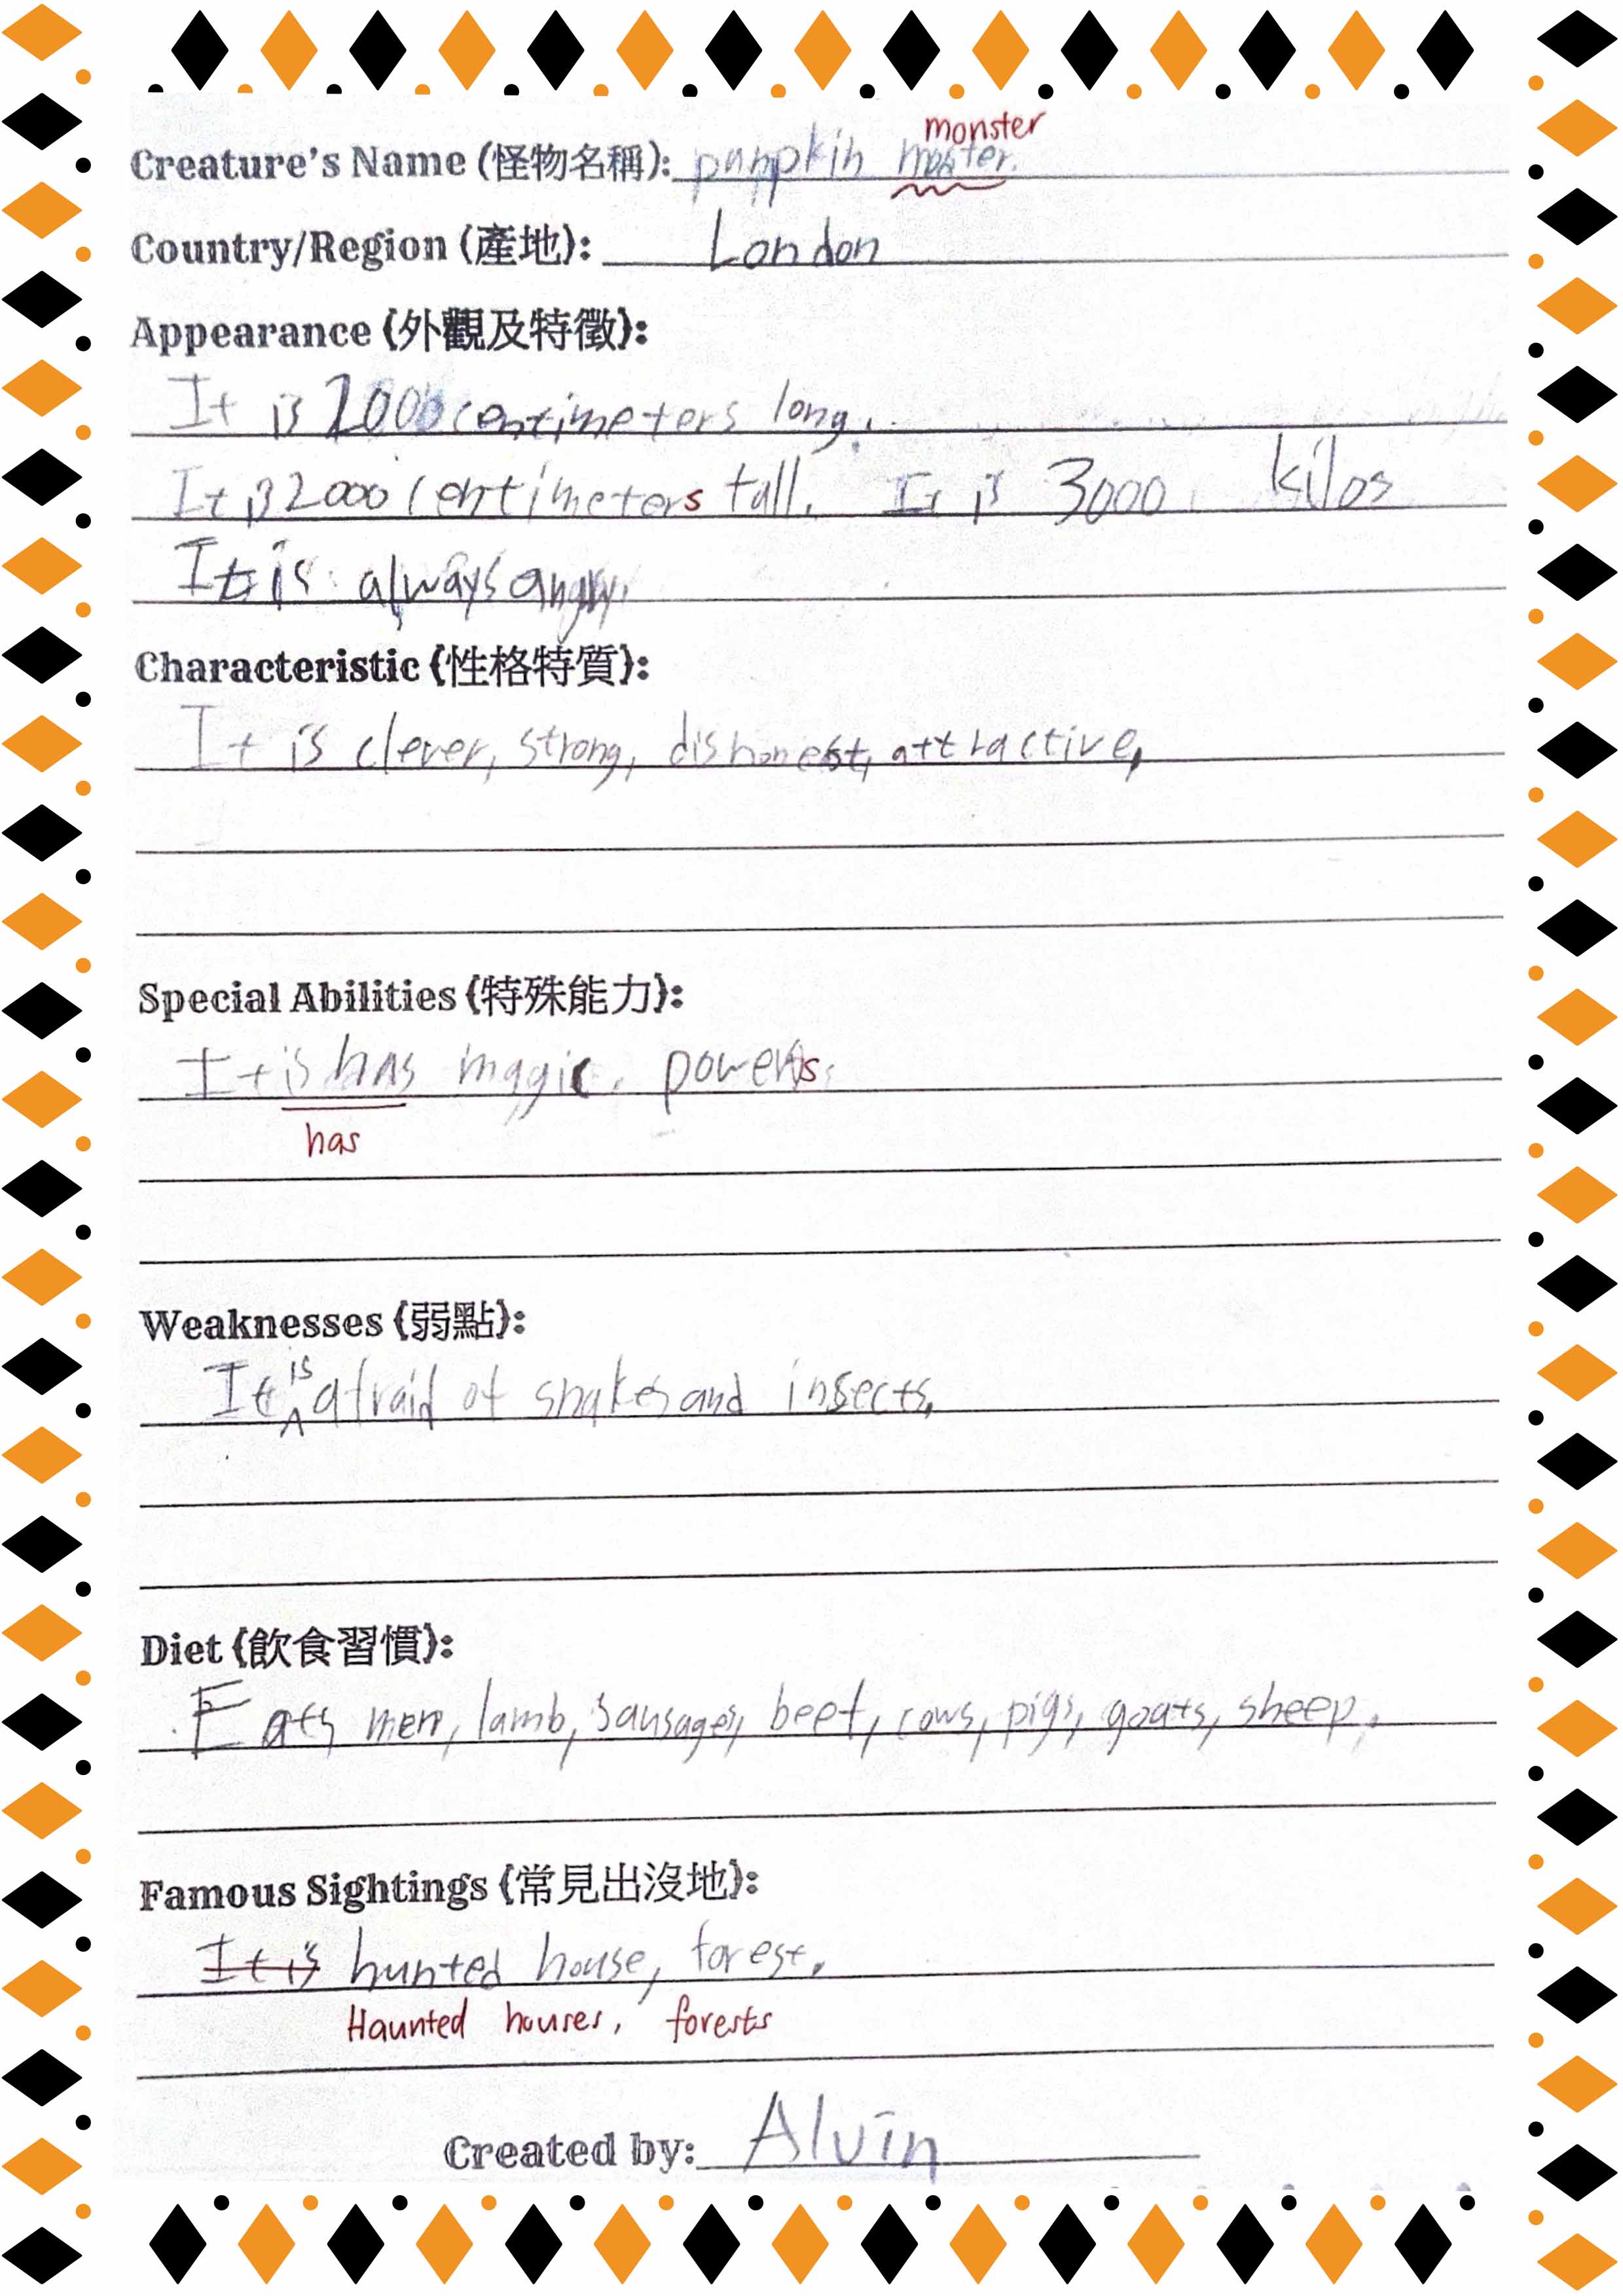 monster
Creature's Name (怪物名稱): pumpkin moster.
Country/Region (產地): London
Appearance (外觀及特徵):
It is 2000 centimeters long.
It is 2000 centimeters tall. It is 3000 kilos
It is always angry.
Characteristic (性格特質):
It is clever, strong, dishonest, attractive,
Special Abilities (特殊能力):
It is has magic. powers.
has
Weaknesses (弱點):
is
It afraid of snakes and insects,
Diet (飲食習慣):
Eats men, lamb, sausages, beef, cows, pigs, goats, sheep,
Famous Sightings (常見出沒地):
It is hunted house, forest.
Haunted houses, forests
Created by: Alvin